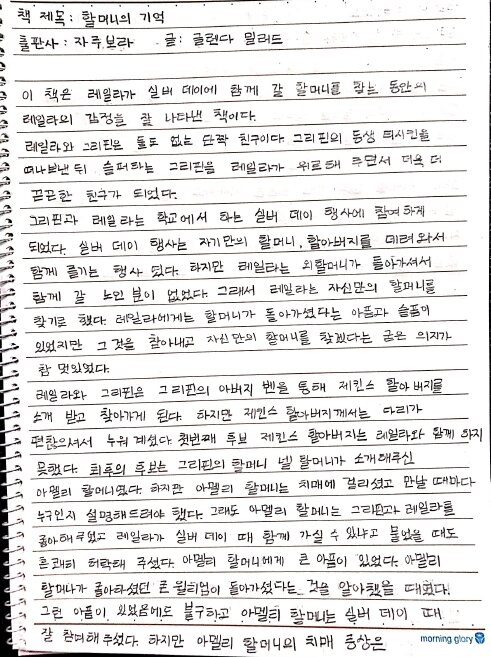 책 제목 : 할머니의 기억
출판사 : 자주보라 글 : 글렌다 밀러드
이 책은 레일라가 실버 데이에 함께 갈 할머니를 찾는 동안의
레일라의 감정을 잘 나타낸 책이다.
레일라와 그리핀은 둘도 없는 단짝 친구이다. 그리핀의 동생 티시킨을
떠나보낸 뒤 슬퍼하는 그리핀을 레일라가 위로해 주면서 더욱 더
끈끈한 친구가 되었다.
그리핀과 레일라는 학교에서 하는 실버 데이 행사에 참여하게
되었다. 실버 데이 행사는 자기만의 할머니, 할아버지를 데려와서
함께 즐기는 행사 였다. 하지만 레일라는 외할머니가 돌아가셔서
함께 갈 노인 분이 없었다. 그래서 레일라는 자신만의 할머니를
찾기로 했다. 레일라에게는 할머니가 돌아가셨다는 아픔과 슬픔이
있었지만 그것을 참아내고 자신만의 할머니를 찾겠다는 굳은 의지가
참 멋있었다.
레일라와 그리핀은 그리핀의 아버지 벤을 통해 제킨스 할아버지를
소개 받고 찾아가게 된다. 하지만 제킨스 할아버지께서는 다리가
편찮으셔서 누워 계셨다. 첫번째 후보 제킨스 할아버지는 레일라와 함께 하지
못했다. 최후의 후보는 그리핀의 할머니 넬 할머니가 소개해주신
아멜리 할머니였다. 하지만 아멜리 할머니는 치매에 걸리셨고 만날 때마다
누구인지 설명해드려야 했다. 그래도 아멜리 할머니는 그리핀과 레일라를
좋아해주었고 레일라가 실버 데이 때 함께 가실 수 있냐고 물었을 때도
흔쾌히 허락해 주셨다. 아멜리 할머니에게 큰 아픔이 있었다. 아멜리
할머니가 좋아하셨던 윌리엄이 돌아가셨다는 것을 알아챘을 때였다.
그런 아픔이 있었음에도 불구하고 아멜리 할머니는 실버 데이 때
잘 참여해 주셨다. 하지만 아멜리 할머니의 치매 증상은
morning glory